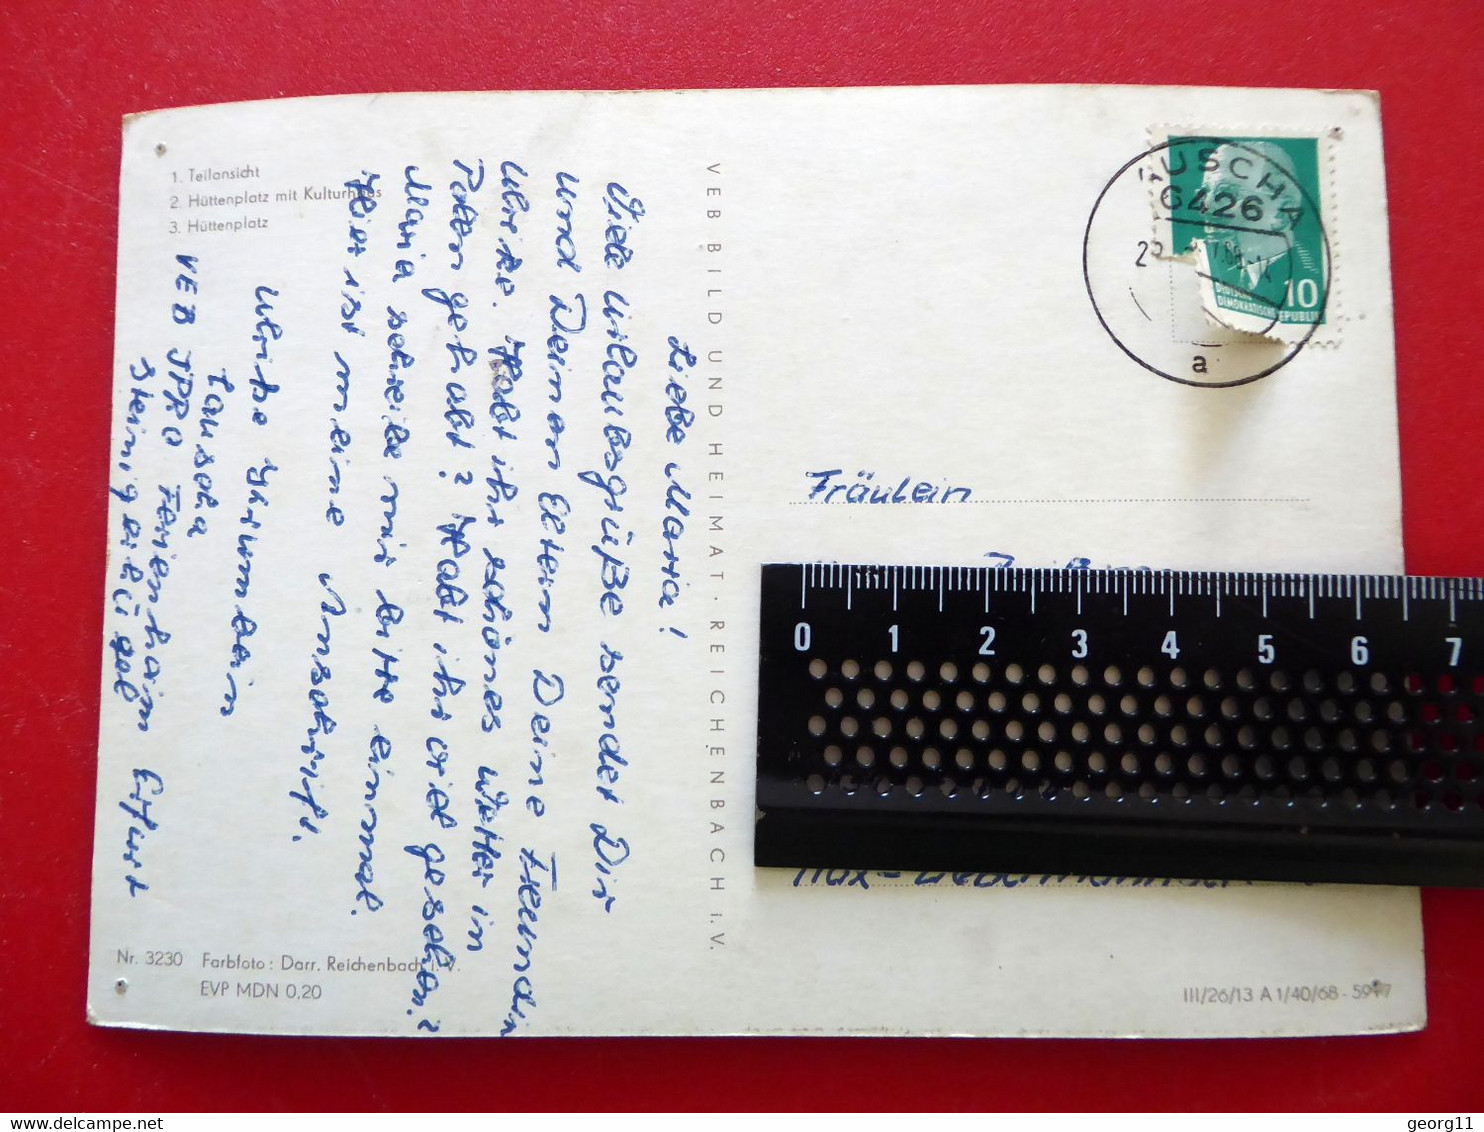 1. Teilansicht
2. Hüttenplatz mit Kulturhaus
3. Hüttenplatz
Liebe Maria!
Viele Urlaubsgrüße sendet Dir
und Deinen Eltern Deine Freundin
Ulrike. Habt ihr schönes Wetter in
Polen gehabt? Habt ihr viel gesehen?
Maria schreibe mir bitte einmal.
Hier ist meine Anschrift.
Ulrike
Lauscha
VEB IPRO Ferienheim Erfurt
Steinigerhügel
VEB BILD UND HEIMAT · REICHENBACH I. V.
Nr. 3230 Farbfoto: Darr. Reichenbach i. V.
EVP MDN 0,20
AUSCHA
6426
a
10
DEUTSCHE
DEMOKRATISCHE REPUBLIK
Fräulein
0 1 2 3 4 5 6 7
III/26/13 A 1/40/68 - 5917
delcampe.net
georg11